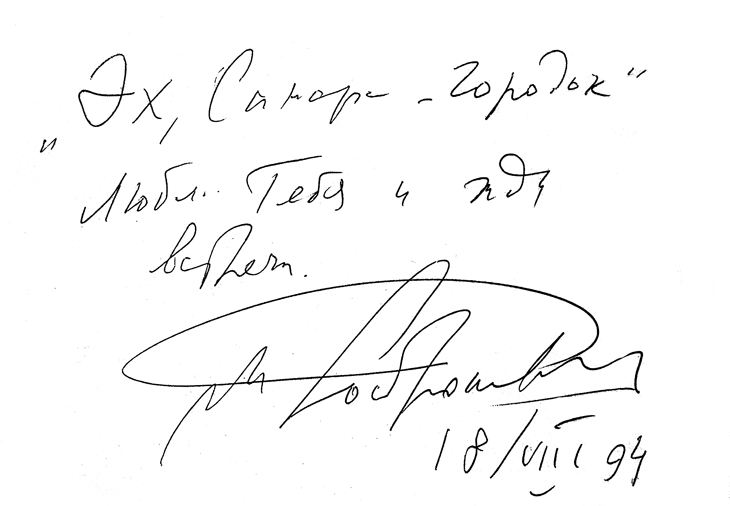 "Эх, Самара - городок"
Люблю Тебя и жду
встречи.
18/VIII 94